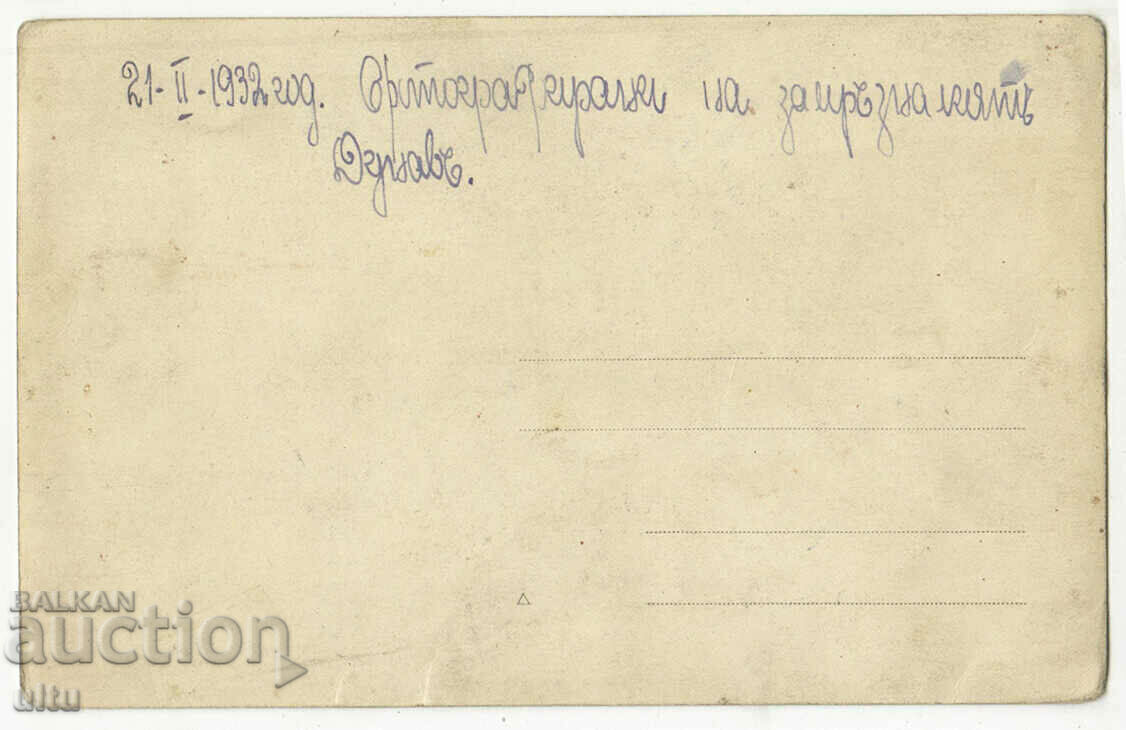 21-II-1932 год. Фотографирани на замръзналиятъ
Дунавъ.
BALKAN
auction
ultu